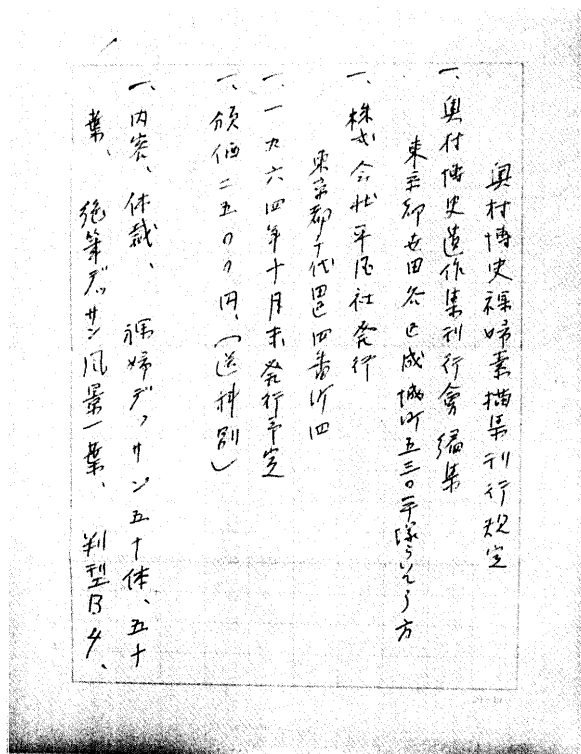 奥村博史裸婦素描集刊行規定
一、奥村博史遺作集刊行會編集
東京都世田谷区成城町五三〇平塚らいてう方
一、株式会社平凡社発行
東京都千代田区四番町四
一、一九六四年十月末発行予定
一、頒価二五〇〇円、（送料別）
一、内容、体裁、裸婦デッサン五十体、五十
葉、絶筆デッサン風景一葉、判型B4、